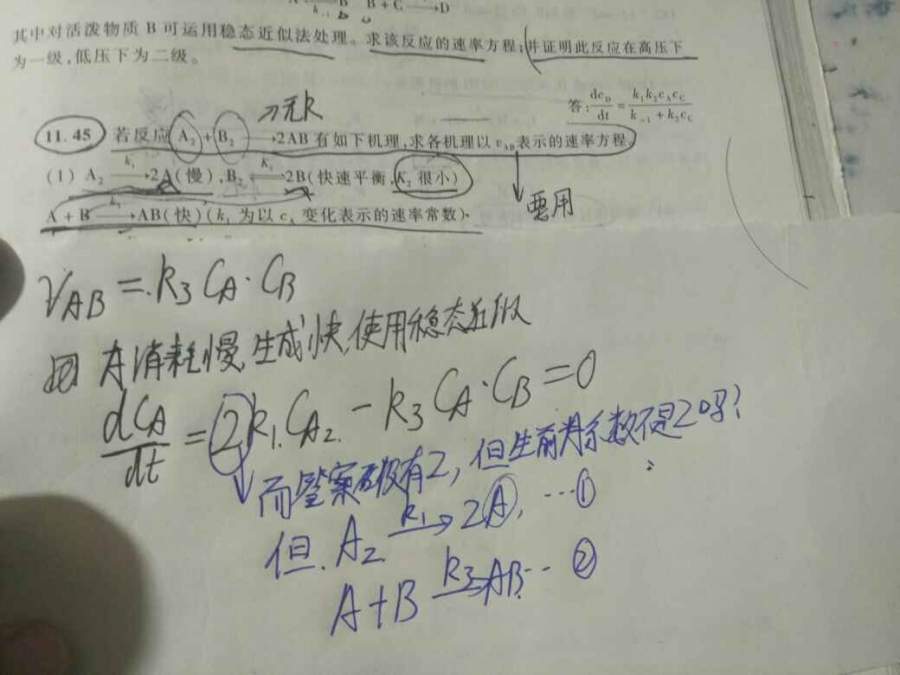 B B+C→D
其中对活泼物质 B 可运用稳态近似法处理。求该反应的速率方程;并证明此反应在高压下
为一级,低压下为二级。
答:dc_D/dt = k₁k₂c_Ac_C/(k₋₁+k₂c_C)
11.45 若反应 A₂+B₂→2AB 有如下机理,求各机理以 v_AB 表示的速率方程。
(1) A₂ —k₁→ 2A(慢),B₂ ⇌K₂ 2B(快速平衡,K₂ 很小)
A+B —k₃→ AB(快)(k₁ 为以 c_A 变化表示的速率常数)。
要用
V_AB = k₃ C_A · C_B
因 A消耗慢,生成快,使用稳态近似
dC_A/dt = 2k₁·C_A₂ − k₃ C_A·C_B = 0
而答案没有2,但生前为系数不是2吗?
但 A₂ —k₁→ 2A, …①
A+B —k₃→ AB … ②